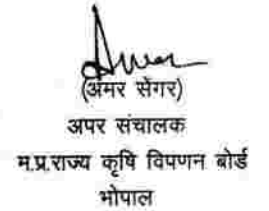 (अमर सेंगर)
अपर संचालक
म.प्र.राज्य कृषि विपणन बोर्ड
भोपाल